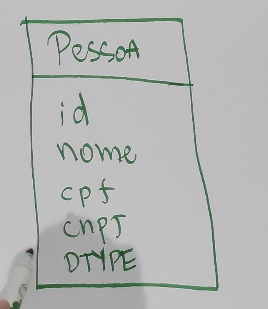 PessoA
id
nome
cpf
cnpJ
DTYPE